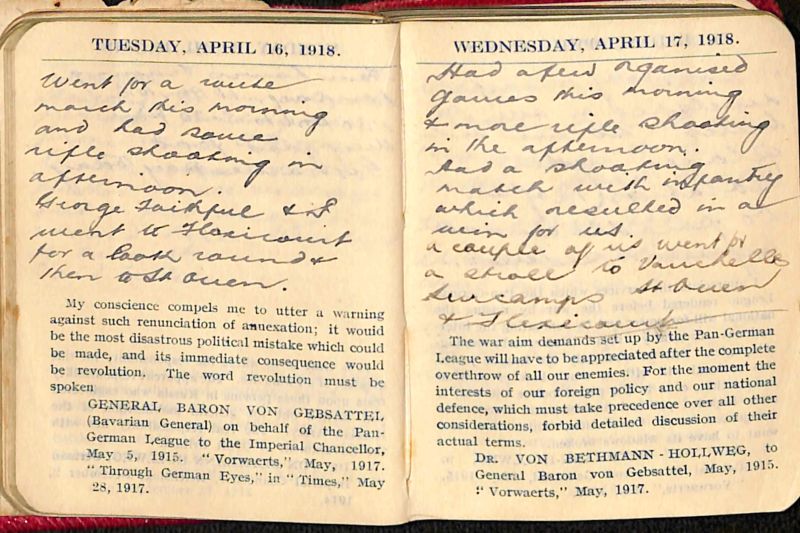 TUESDAY, APRIL 16, 1918.
Went for a route
march this morning
and had some
rifle shooting in
afternoon.
George Faithful & I
went to Flexicourt
for a look round &
then to St Ouen.
My conscience compels me to utter a warning
against such renunciation of annexation; it would
be the most disastrous political mistake which could
be made, and its immediate consequence would
be revolution. The word revolution must be
spoken
GENERAL BARON VON GEBSATTEL
(Bavarian General) on behalf of the Pan-
German League to the Imperial Chancellor,
May 5, 1915. "Vorwaerts," May, 1917.
"Through German Eyes," in "Times," May
28, 1917.
WEDNESDAY, APRIL 17, 1918.
Had a few organised
games this morning
& more rifle shooting
in the afternoon.
Had a shooting
match with infantry
which resulted in a
win for us.
a couple of us went for
a stroll to Vauchelles
Surcamps St Ouen
& Flexicourt
The war aim demands set up by the Pan-German
League will have to be appreciated after the complete
overthrow of all our enemies. For the moment the
interests of our foreign policy and our national
defence, which must take precedence over all other
considerations, forbid detailed discussion of their
actual terms.
DR. VON BETHMANN-HOLLWEG, to
General Baron von Gebsattel, May, 1915.
"Vorwaerts," May, 1917.